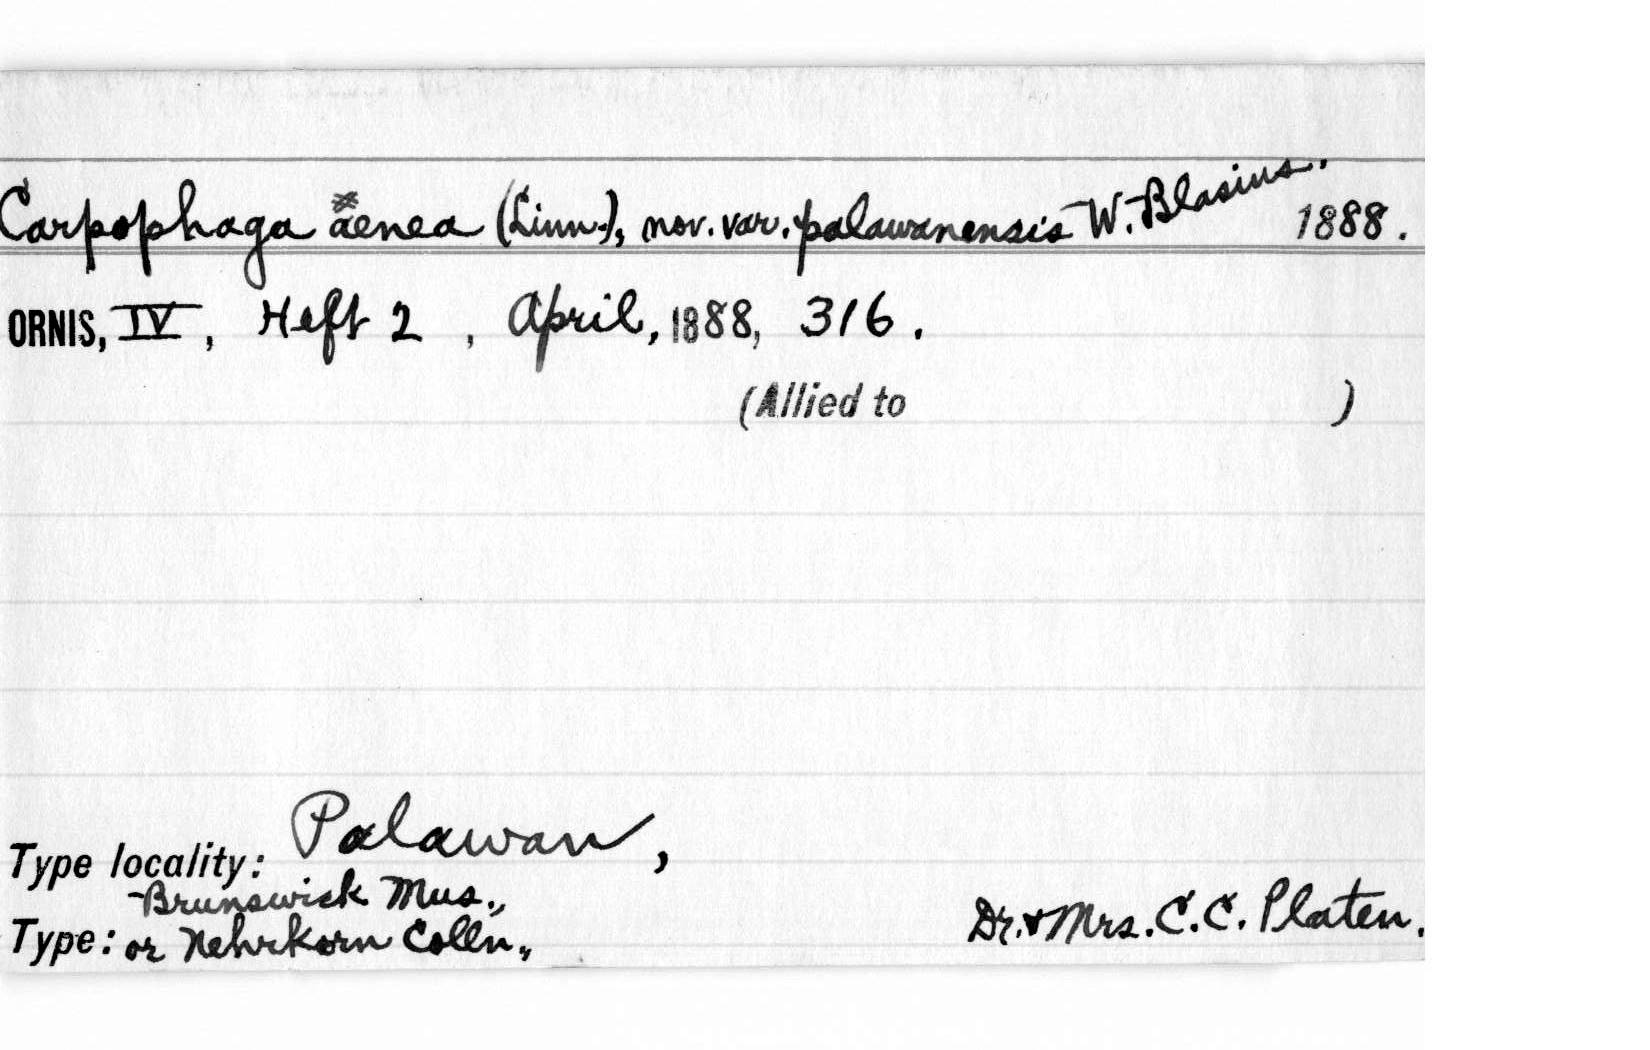 Carpophaga aenea (Linn.), nov. var. palawanensis W. Blasius. 1888.
ORNIS, IV, Heft 2, April, 1888, 316.
(Allied to )
Type locality: Palawan,
Brunswick Mus.,
Type: or Nehrkorn Colln., Dr. & Mrs. C. C. Platen.